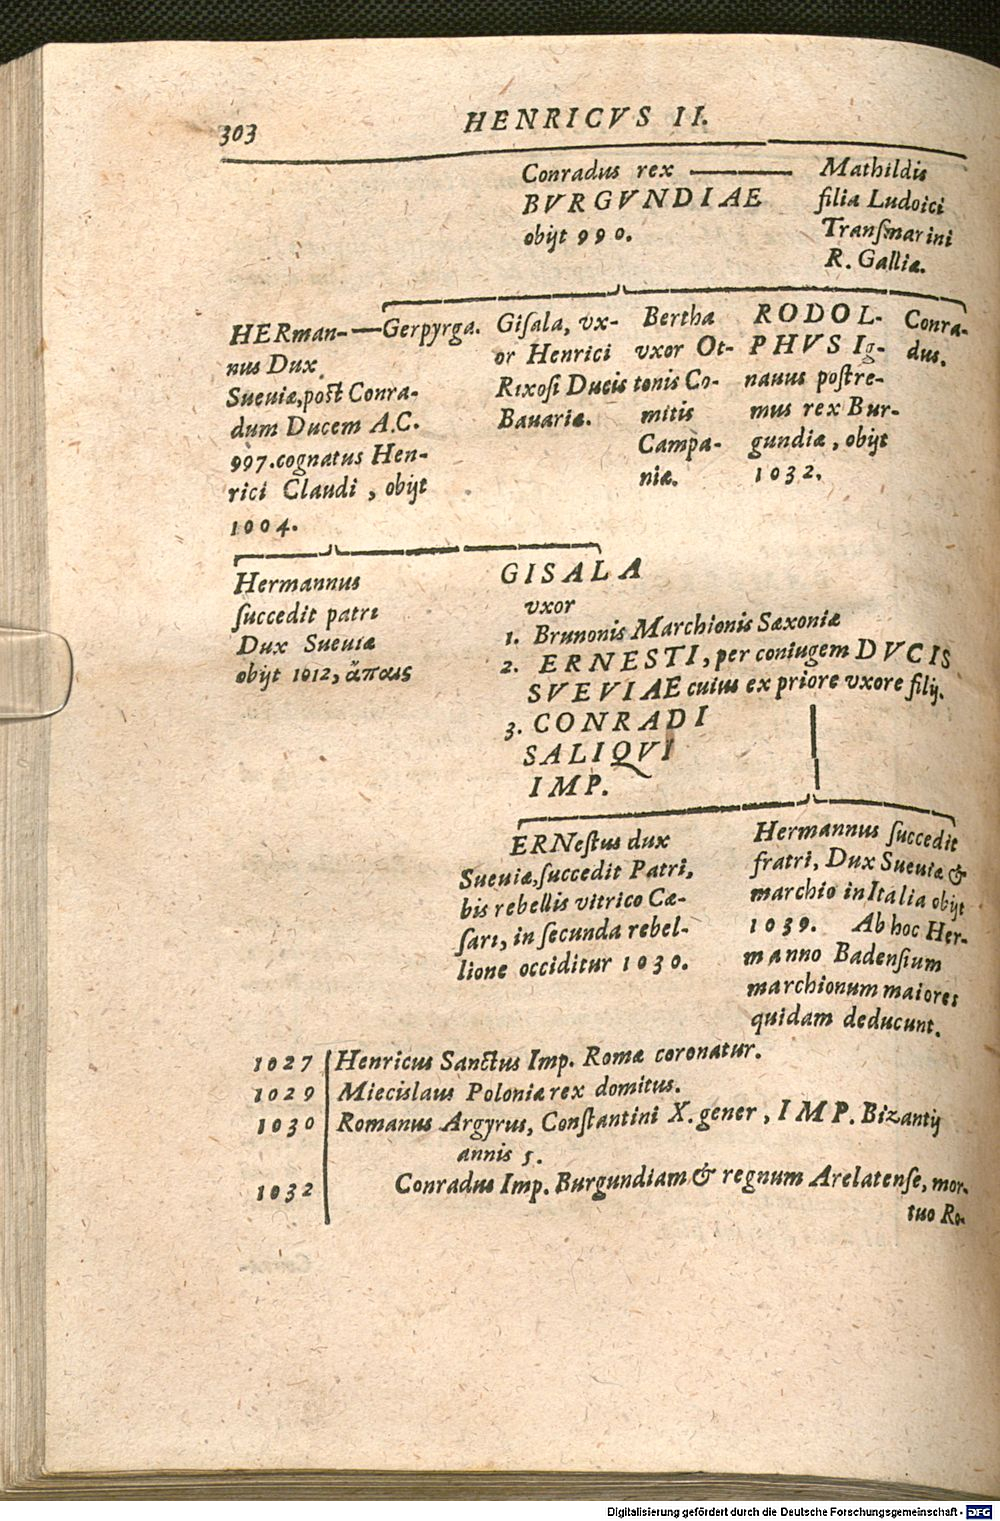 303
HENRICVS II.
Conradus rex
BVRGVNDIAE
obijt 990.
Mathildis
filia Ludoici
Tranſmarini
R. Galliæ.
HERman-
nus Dux
Sueuiæ, post Conra-
dum Ducem A.C.
997. cognatus Hen-
rici Claudi, obijt
1004.
Gerpyrga.
Giſala, vx-
or Henrici
Rixoſi Ducis
Bauariæ.
Bertha
vxor Ot-
tonis Co-
mitis
Campa-
niæ.
RODOL-
PHVS Ig-
nauus poſtre-
mus rex Bur-
gundiæ, obijt
1032.
Conra-
dus.
Hermannus
ſuccedit patri
Dux Sueuiæ
obijt 1012, ἄπαις
GISALA
vxor
1. Brunonis Marchionis Saxoniæ
2. ERNESTI, per coniugem DVCIS
SVEVIAE cuius ex priore vxore filij.
3. CONRADI
SALIQVI
IMP.
ERNeſtus dux
Sueuiæ, ſuccedit Patri,
bis rebellis vitrico Cæ-
ſari, in ſecunda rebel-
lione occiditur 1030.
Hermannus ſuccedit
fratri, Dux Sueuiæ &
marchio in Italia obijt
1039. Ab hoc Her-
manno Badenſium
marchionum maiores
quidam deducunt.
1027 Henricus Sanctus Imp. Romæ coronatur.
1029 Miecislaus Poloniæ rex domitus.
1030 Romanus Argyrus, Conſtantini X. gener, IMP. Bizantij
annis 5.
1032 Conradus Imp. Burgundiam & regnum Arelatenſe, mor-
tuo Ro-
Digitalisierung gefördert durch die Deutsche Forschungsgemeinschaft - DFG